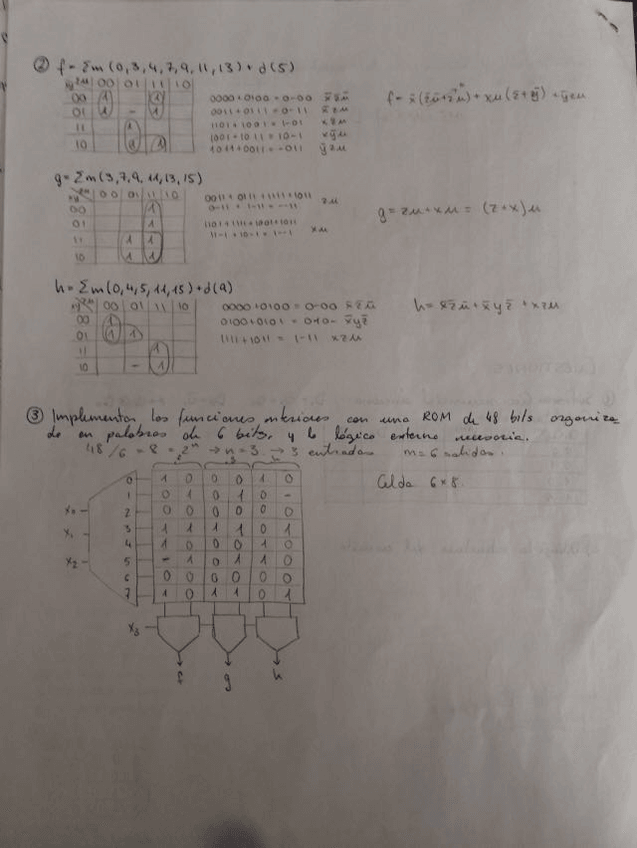 ② f = Σm (0,3,4,7,9,11,13) + d(5)
xy zu 00 01 11 10
00 1 1
01 1 - 1
11 1
10 1 1
0000+0100 = 0-00 x̄z̄ū
0011+0111 = 0-11 x̄zu
1101+1001 = 1-01 xz̄u
1001+1011 = 10-1 xȳu
1011+0011 = -011 ȳzu
g = Σm (3,7,9,11,13,15)
00 01 11 10
00 1
01 1
11 1 1
10 1 1
0011+0111+1111+1011
0-11 + 1-11 = --11 zu
1101+1111+1001+1011
11-1+10-1 = 1--1 xu
g = zu+xu = (z+x)u
h = Σm (0,4,5,11,15) + d(9)
xy zu 00 01 11 10
00 1
01 1 1
11 1
10 - 1
0000+0100 = 0-00 x̄z̄ū
0100+0101 = 010- x̄yz̄
1111+1011 = 1-11 xzu
h = x̄z̄ū + x̄yz̄ + xzu
③ Implementar las funciones anteriores con una ROM de 48 bits organiza-
do en palabras de 6 bits, y la lógica externa necesaria.
48/6 = 8 = 2ⁿ → n=3 → 3 entradas m=6 salidas.
Celda 6×8.
0 1 0 0 0 1 0
1 0 1 0 1 0 -
2 0 0 0 0 0 0
3 1 1 1 1 0 1
4 1 0 0 0 1 0
5 - 1 0 1 1 0
6 0 0 0 0 0 0
7 1 0 1 1 0 1
X₀
X₁
X₂
X₃
f g h